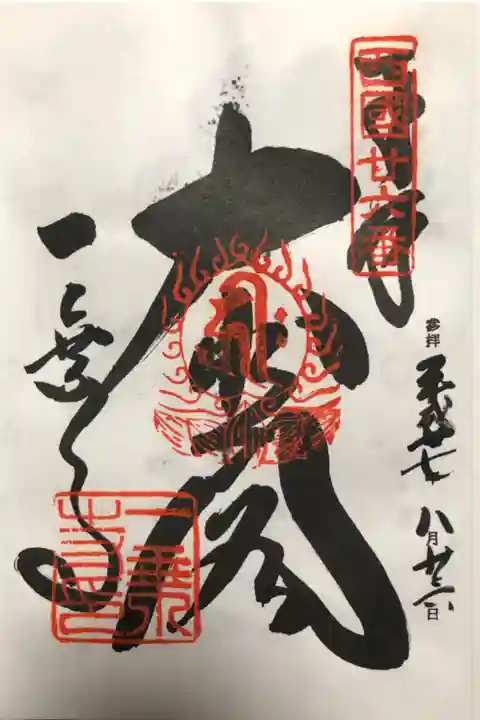 西國廿六番
奉拝
參拝 平成廿七 八月廿 日
大悲閣
一乗寺
一乗
寺印